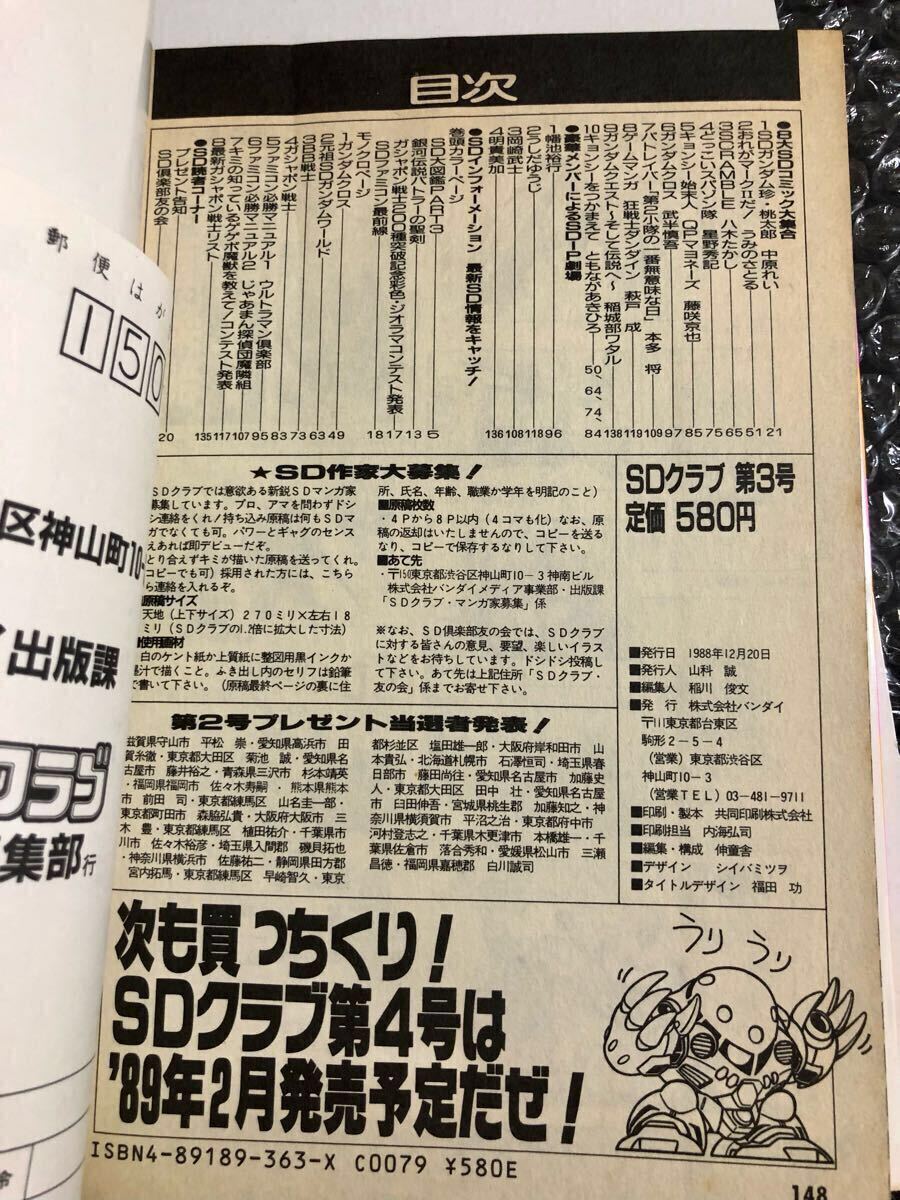 目次
●8大SDコミック大集合
1SDガンダム珍・桃太郎 中原れい 21
2おれがマークⅡだ! うみのさとる 51
3SCRAMBLE 八木たかし 65
4どっこいスパゾン隊 星野秀記 75
5キョンシー始末人 QPマヨネーズ 藤咲京也 85
6ガンダムクロス 武半慎吾 97
7パトレイバー「第2小隊の一番無意味な日」 本多 将 109
8ゲームマンガ 狂戦士ダンダイン 萩戸 成 119
9ガンダムクエスト〜そして伝説へ〜 稲城部ワタル 138
10キョンシーをつかまえて ともながあきひろ 50、64、74、84
●豪華メンバーによるSD-P劇場
1幡池裕行 96
2うしだゆうじ 118
3岡崎武士 108
4明貴美加 136
●SDインフォーメーション 最新SD情報をキャッチ!
巻頭カラーページ
SD大図鑑PART3 5
銀河伝説バトラーの聖剣 13
ガシャポン戦士200種突破記念彩色・ジオラマコンテスト発表 17
SDファミコン最前線 18
モノクロページ
1ガンダムクロス 49
2元祖SDガンダムワールド 63
3BB戦士 73
4ガシャポン戦士 83
5ファミコン必勝マニュアル1 ウルトラマン倶楽部 95
6ファミコン必勝マニュアル2 じゃあまん探偵団魔隣組 107
7アキミの知っているゲゲボ魔獣を教えて!コンテスト発表 117
8最新ガシャポン戦士リスト 135
●SD読者コーナー
プレゼント告知
SD倶楽部友の会 20
★SD作家大募集!
SDクラブでは意欲ある新鋭SDマンガ家
募集しています。プロ、アマを問わずドシ
シ連絡をくれ!持ち込み原稿は何もSDマ
ガでなくても可。パワーとギャグのセンス
えあれば即デビューだぞ。
とり合えずキミが描いた原稿を送ってくれ
コピーでも可)採用された方には、こちら
ら連絡を入れるぞ。
原稿サイズ
天地(上下サイズ)270ミリ×左右18
ミリ(SDクラブの1.2倍に拡大した寸法)
使用画材
白のケント紙か上質紙に整図用黒インクか
墨汁で描くこと。ふき出し内のセリフは鉛筆
で書いて下さい。(原稿最終ページの裏に住
所、氏名、年齢、職業か学年を明記のこと)
■原稿枚数
・4Pから8P以内(4コマも化)なお、原
稿の返却はいたしませんので、コピーを送る
なり、コピーで保存するなりして下さい。
■あて先
・〒150東京都渋谷区神山町10-3神南ビル
株式会社バンダイメディア事業部・出版課
「SDクラブ・マンガ家募集」係
※なお、SD倶楽部友の会では、SDクラブ
に対する皆さんの意見、要望、楽しいイラス
トなどをお待ちしています。ドシドシ投稿し
て下さい。あて先は上記住所「SDクラブ・
友の会」係までお寄せ下さい。
第2号プレゼント当選者発表!
滋賀県守山市 平松 崇・愛知県高浜市 田
賀糸徹・東京都大田区 菊池 誠・愛知県名
古屋市 藤井裕之・青森県三沢市 杉本靖英
・福岡県福岡市 佐々木寿嗣・熊本県熊本
市 前田 司・東京都練馬区 山名圭一郎・
東京都町田市 森脇弘貴・大阪府大阪市 三
木 豊・東京都練馬区 植田祐介・千葉県市
川市 佐々木裕彦・埼玉県入間郡 磯貝拓也
・神奈川県横浜市 佐藤祐二・静岡県田方郡
宮内拓馬・東京都練馬区 早崎智久・東京
都杉並区 塩田雄一郎・大阪府岸和田市 山
本貴弘・北海道札幌市 石澤恒司・埼玉県春
日部市 藤田尚住・愛知県名古屋市 加藤史
人・東京都大田区 田中 壮・愛知県名古屋
市 臼田伸吾・宮城県桃生郡 加藤知之・神
奈川県横須賀市 平沼之治・東京都府中市
河村登志之・千葉県木更津市 本橋雄一・千
葉県佐倉市 落合秀和・愛媛県松山市 三瀬
昌徳・福岡県嘉穂郡 白川誠司
SDクラブ 第3号
定価 580円
■発行日 1988年12月20日
■発行人 山科 誠
■編集人 稲川 俊文
■発 行 株式会社バンダイ
〒111東京都台東区
駒形2-5-4
(営業)東京都渋谷区
神山町10-3
(営業TEL)03-481-9711
■印刷・製本 共同印刷株式会社
■印刷担当 内海弘司
■編集・構成 伸童舎
■デザイン シイバミツヲ
■タイトルデザイン 福田 功
次も買っちくり!
SDクラブ第4号は
'89年2月発売予定だぜ!
うり うり
ISBN4-89189-363-X C0079 ¥580E
148
郵便はが
150
区神山町10-
出版課
クラブ
集部行